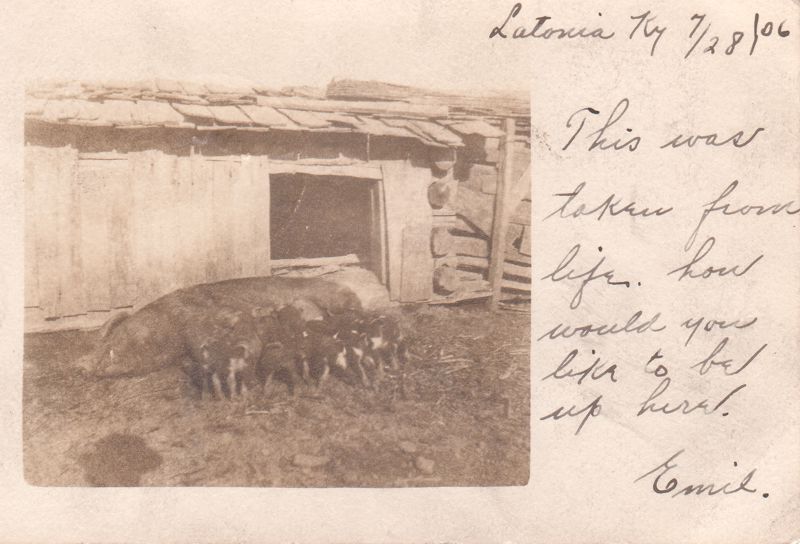 Latonia Ky 7/28/06
This was
taken from
life. how
would you
like to be
up here.
Emil.